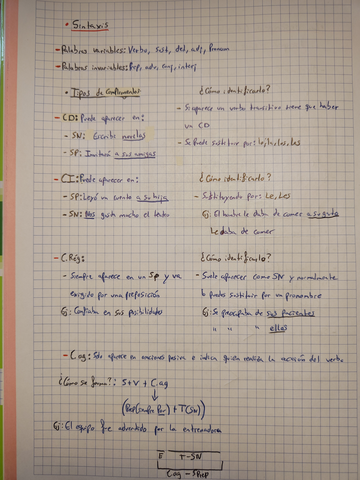 • Sintaxis
- Palabras variables: Verbo, sust, det, adj, Pronom
- Palabras invariables: Prep, adv, conj, interj
• Tipos de Complementos
¿Cómo identificarlo?
- CD: Puede aparecer en:
- Si aparece un verbo transitivo tiene que haber un CD
- SN: Escribe novelas
- SP: Invitará a sus amigas
- Se puede sustituir por: le, lo, la, los, las
- CI: Puede aparecer en:
¿Cómo identificarlo?
- SP: Leyó un cuento a su hija
- Sustituyendo por: Le, Les
- SN: Nos gusta mucho el teatro
Ej: El hombre le daba de comer a su gato
Le daba de comer
- C.Rég:
¿Cómo identificarlo?
- Siempre aparece en un SP y va
- Suele aparecer como SN y normalmente
exigido por una preposición
lo puedes sustituir por un pronombre
Ej: Confiaba en sus posibilidades
Ej: Se preocupaba de sus pacientes
" " " ellos
- C.ag: Solo aparece en oraciones pasiva e indica quien realiza la acción del verbo
¿Cómo se forma?: S + V + C.ag
(Prep (siempre Por) + T (SN))
Ej: El equipo fue advertido por la entrenadora
E T-SN
Cag - SPrep